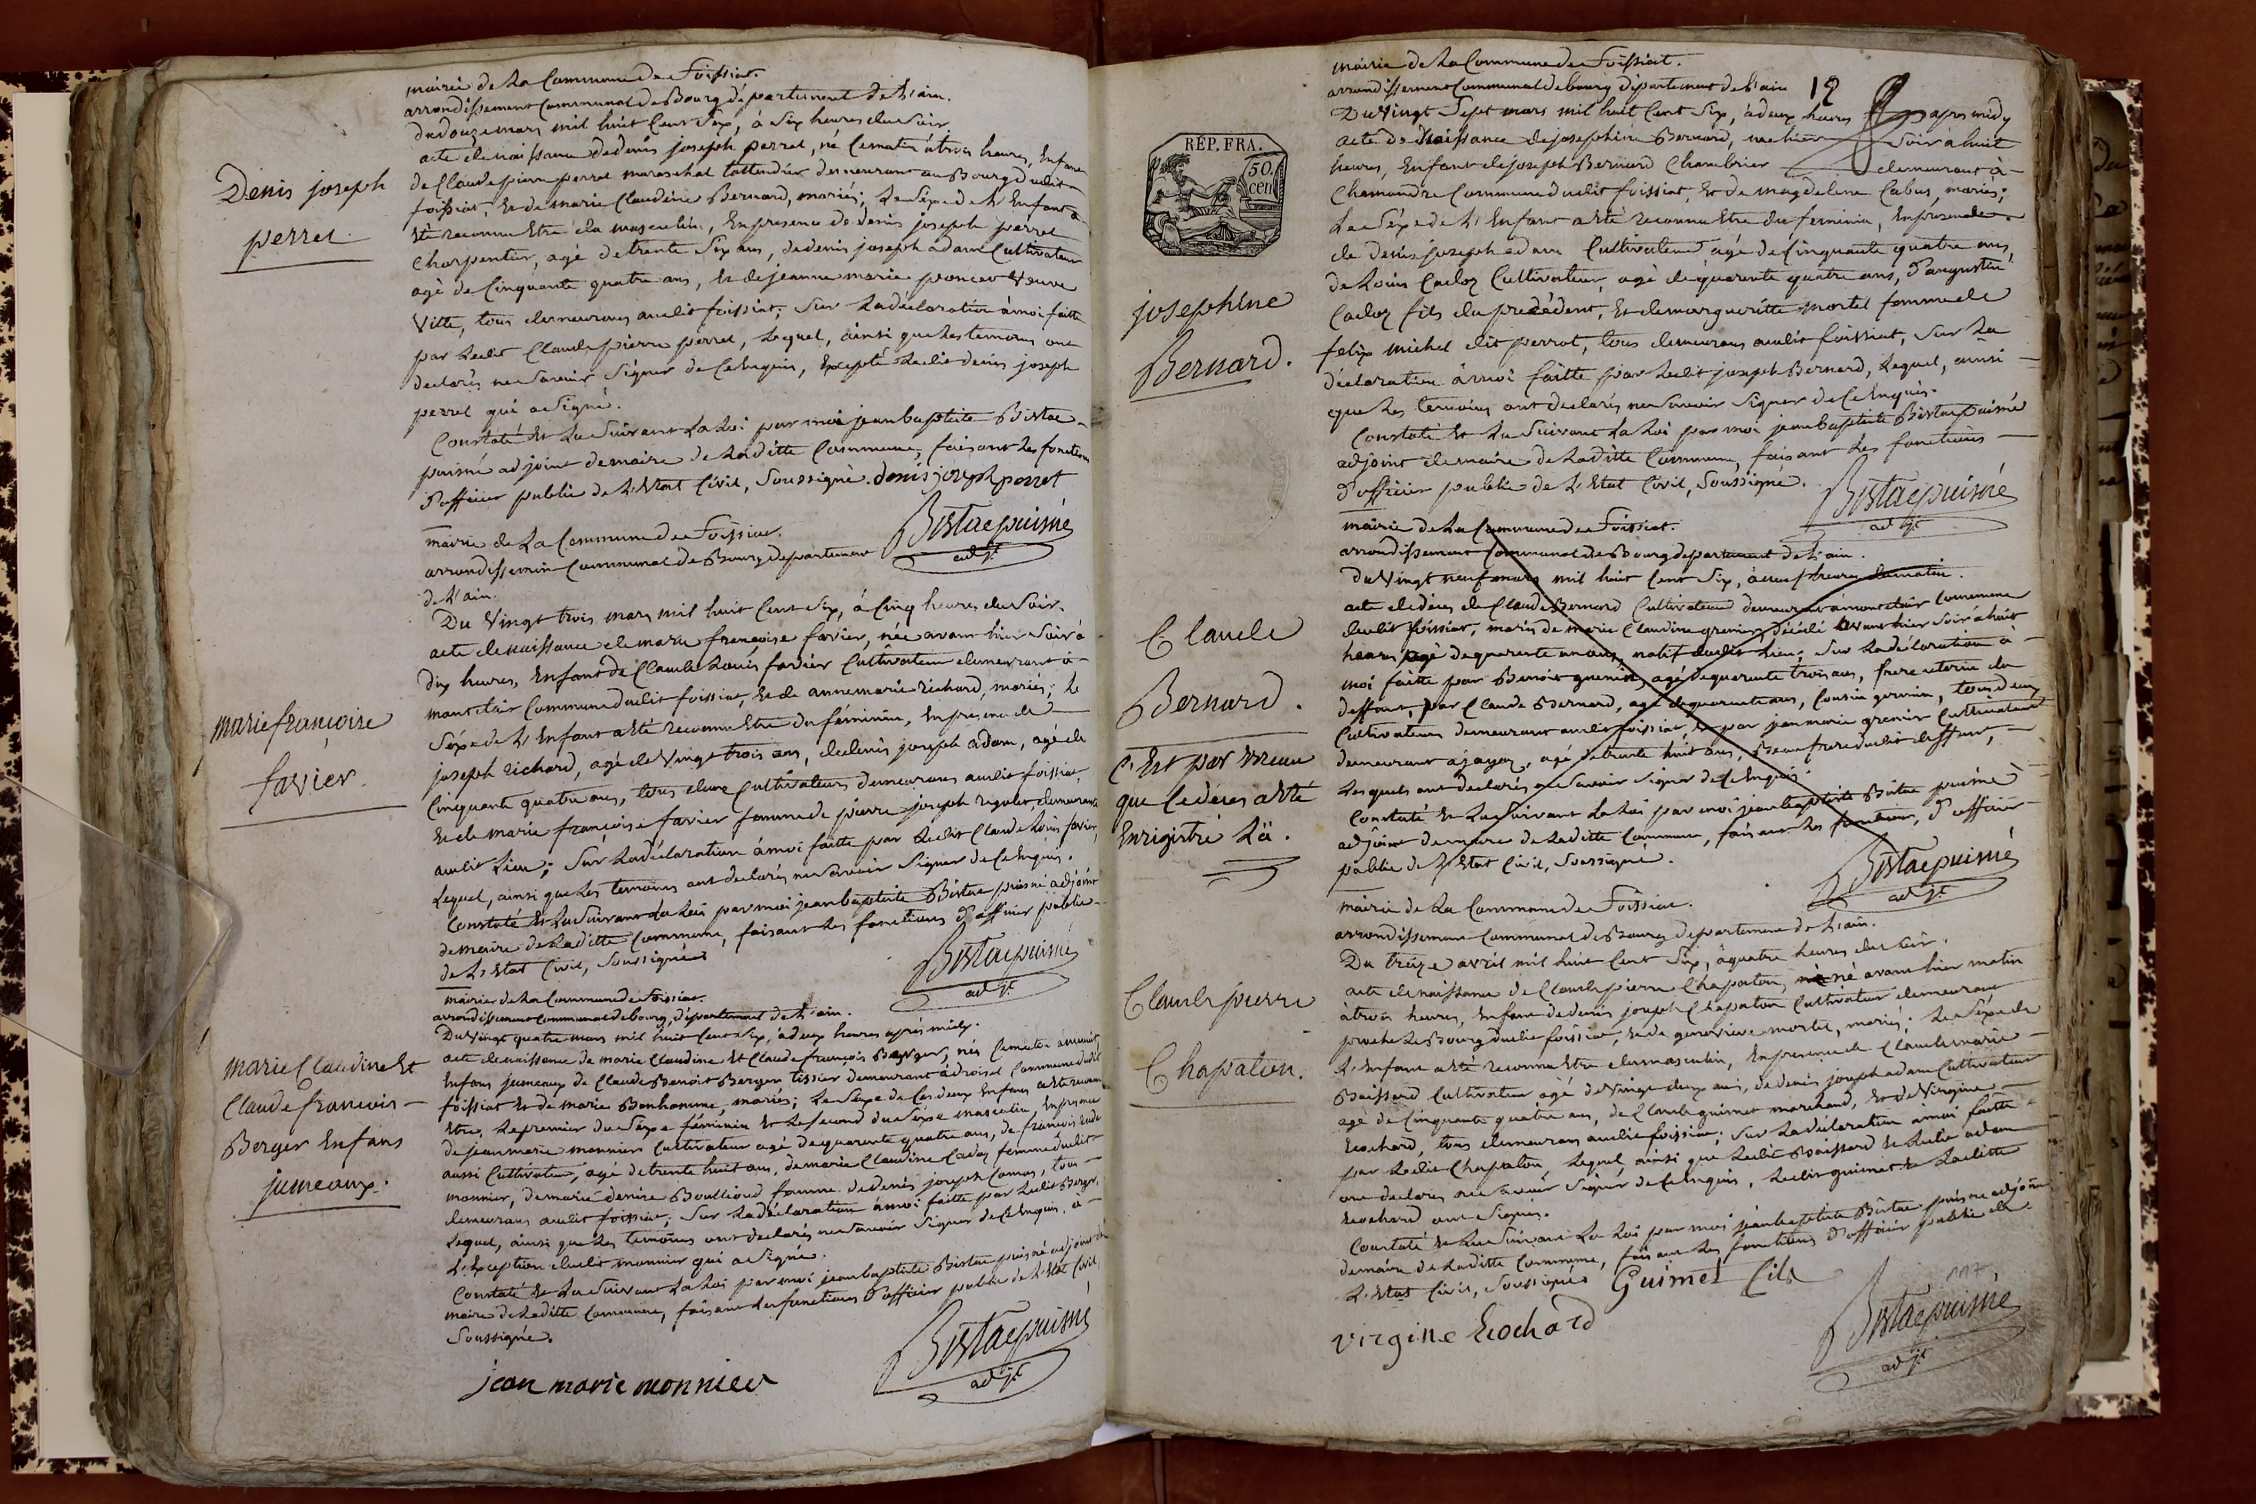 mairie de La Commune de Foissiat.
arrondissement Communal de Bourg département de L'ain.
du douze mars mil huit Cent Six, à Six heures du Soir
acte de naissance de denis joseph perret, né Ce matin à trois heures, Enfant
de Claude pierre perret mareschal tattendier demeurant au Bourg dudit
foissiat, Et de marie Claudine Bernard, mariés; Le Sexe de L'Enfant a
Eté reconnu Etre du masculin, En presence de denis joseph perret
Charpentier, agé de trente Six ans, de denis joseph adam Cultivateur
agé de Cinquante quatre ans, Et de jeanne marie poncet Veuve
Vitte, tous demeurans audit foissiat; Sur La déclaration à moi faitte
par Ledit Claude pierre perret, Lequel, ainsi que Les temoins ont
declarés ne Savoir Signer de Ce Enquis, Excepté Ledit denis joseph
perret qui a Signé.
Constaté Et Lu Suivant La Loi par moi jean baptiste Bistac
puisné adjoint de maire de Laditte Commune, faisant Les fonctions
d'officier public de L'Etat Civil, Soussigné. denis joseph perret
Bistac puisné
adjt
Denis joseph
perret
mairie de La Commune de Foissiat.
arrondissement Communal de Bourg département
de L'ain.
Du Vingt trois mars mil huit Cent Six, à Cinq heures du Soir.
acte de naissance de marie françoise favier, née avant hier Soir à
dix heures, Enfant de Claude Louis favier Cultivateur demeurant à
montclair Commune dudit foissiat, Et de anne marie richard, mariés; Le
Sexe de L'Enfant a Eté reconnu Etre du féminin, En presence de
joseph richard, agé de Vingt trois ans, de denis joseph adam, agé de
Cinquante quatre ans, tous deux Cultivateurs demeurans audit foissiat,
Et de marie françoise favier femme de pierre joseph demeurante
audit Lieu; Sur La déclaration à moi faitte par Ledit Claude Louis favier,
Lequel, ainsi que Les temoins ont declarés ne Savoir Signer de Ce Enquis.
Constaté Et Lu Suivant La Loi par moi jean baptiste Bistac puisné adjoint
de maire de Laditte Commune, faisant Les fonctions d'officier public
de L'Etat Civil, Soussigné
Bistac puisné
adjt
marie françoise
favier.
mairie de La Commune de Foissiat.
arrondissement Communal de bourg, département de L'ain.
Du Vingt quatre mars mil huit Cent Six, à deux heures après midy.
acte de naissance de marie Claudine Et Claude françois Berger, nés Ce matin à minuit,
Enfans jumeaux de Claude Benoit Berger tissier demeurant à Commune dudit
foissiat Et de marie Bonhomme, mariés; Le Sexe de Ces deux Enfans a Eté reconnu
Etre, Le premier du Sexe féminin Et Le Second du Sexe masculin, En presence
de jean marie monnier Cultivateur agé de quarente quatre ans, de françois
aussi Cultivateur, agé de trente huit ans, de marie Claudine Cadoz femme dudit
monnier, de marie denise Boullioud femme de denis joseph Comas, tous
demeurans audit foissiat, Sur La déclaration à moi faitte par Ledit Berger,
Lequel, ainsi que Les temoins ont declarés ne Savoir Signer de Ce Enquis, à
L'Exception dudit monnier qui a Signé.
Constaté Et Lu Suivant La Loi par moi jean baptiste Bistac puisné adjoint de
maire de Laditte Commune, faisant Les fonctions d'officier public de L'Etat Civil,
Soussigné.
jean marie monnier
Bistac puisné
adjt
marie Claudine Et
Claude françois
Berger Enfans
jumeaux.
12
mairie de La Commune de Foissiat.
arrondissement Communal de bourg département de L'ain
Du Vingt Sept mars mil huit Cent Six, à deux heures apres midy
acte de Naissance de josephine Bernard, née hier Soir à huit
heures, Enfant de joseph Bernard Chambrier demeurant à
Chamandre Commune dudit foissiat, Et de magdeleine Cabus, mariés;
Le Sexe de L'Enfant a Eté reconnu Etre du feminin, En presence
de denis joseph adam Cultivateur agé de Cinquante quatre ans
de Louis Cadoz Cultivateur, agé de quarente quatre ans, d'augustin
Cadoz fils du précédent, Et de margueritte mortel femme de
felix michel dit perrot, tous demeurans audit foissiat, Sur La
déclaration à moi faitte par Ledit joseph Bernard, Lequel, ainsi
que Les temoins ont declarés ne Savoir Signer de Ce Enquis.
Constaté Et Lu Suivant La Loi par moi jean baptiste Bistac puisné
adjoint de maire de Laditte Commune, faisant Les fonctions
d'officier public de L'Etat Civil, Soussigné.
Bistac puisné
adjt
RÉP. FRA.
50.
cen
josephine
Bernard.
mairie de La Commune de Foissiat.
arrondissement Communal de Bourg département de L'ain.
du Vingt neuf mars mil huit Cent Six, à neuf heures du matin.
acte de déces de Claude Bernard Cultivateur demeurant à montclair Commune
dudit foissiat, mariés de marie Claudine grenier, décédé avant hier Soir à huit
heures agé de quarente un ans, natif dudit Lieu; Sur La déclaration à
moi faitte par Benoit guenin, agé de quarente trois ans, frere uterin du
deffunt, par Claude Bernard, agé de quarente ans, Cousin germain, tous deux
Cultivateurs demeurant audit foissiat, Et par jean marie grenier Cultivateur
demeurant à jayat, agé de trente huit ans, Beau frere dudit deffunt,
Lesquels ont declarés ne Savoir Signer de Ce Enquis.
Constaté Et Lu Suivant La Loi par moi jean baptiste Bistac puisné
adjoint de maire de Laditte Commune, faisant Les fonctions, d'officier
public de L'Etat Civil, Soussigné.
Bistac puisné
adjt
Claude
Bernard.
C'Est par Erreur
que Ce déces a Eté
Enregistré Là.
mairie de La Commune de Foissiat.
arrondissement Communal de Bourg département de L'ain.
Du treize avril mil huit Cent Six, à quatre heures du Soir.
acte de naissance de Claude pierre Chapaton, né avant hier matin
à trois heures, Enfant de denis joseph Chapaton Cultivateur demeurant
proche Le Bourg dudit foissiat, Et de geneviève mortel, mariés; Le Sexe de
L'Enfant a Eté reconnu Etre du masculin, En presence de Claude marie
Baissard Cultivateur agé de Vingt deux ans, de denis joseph adam Cultivateur
agé de Cinquante quatre ans, de Claude guimet marchand, Et de Virginie
Ecochard, tous demeurans audit foissiat; Sur La déclaration à moi faitte
par Ledit Chapaton, Lequel, ainsi que Ledit Baissard Et Ledit adam
ont declarés ne Savoir Signer de Ce Enquis, Ledit guimet Et Laditte
Ecochard ont Signés.
Constaté Et Lu Suivant La Loi par moi jean baptiste Bistac puisné adjoint
de maire de Laditte Commune, faisant Les fonctions d'officier public de
L'Etat Civil, Soussigné Guimet fils
virgine Ecochard
117
Bistac puisné
adjt
Claude pierre
Chapaton.